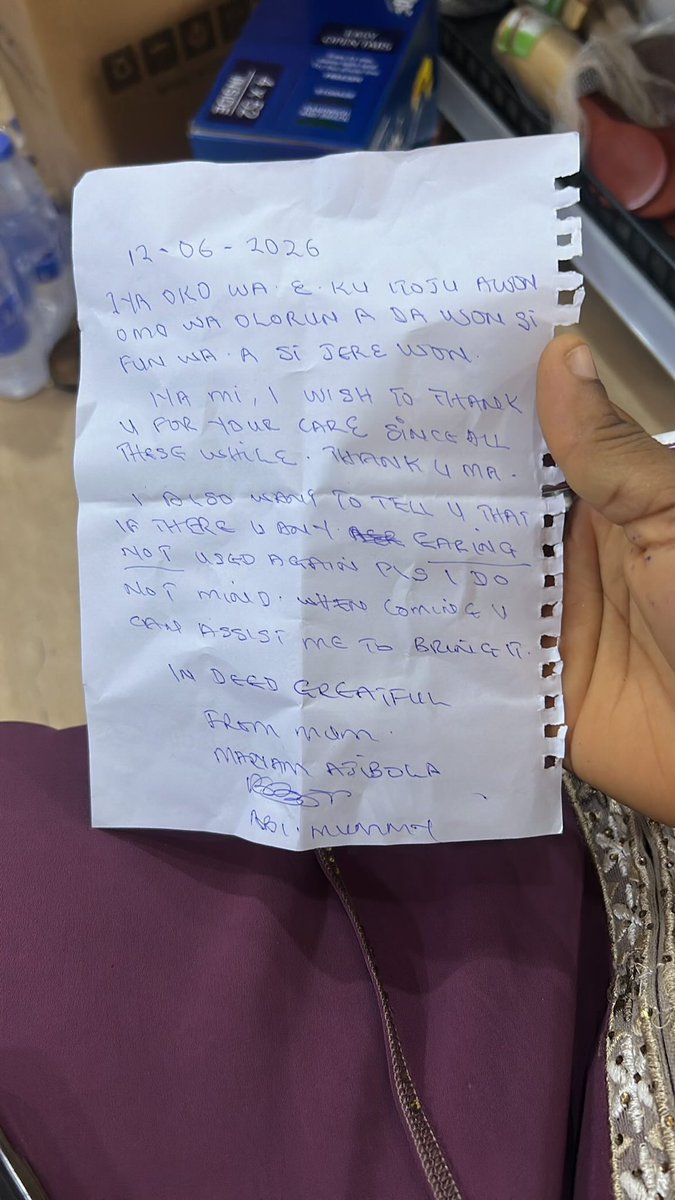 EASY
OPEN TABS
4 X 52
INSIDE
12-06-2026
IYA OKO WA. E. KU ITOJU AWON
OMO WA OLORUN A DA WON SI
FUN WA. A SI JERE WON.
IYA MI, I WISH TO THANK
U FOR YOUR CARE SINCE ALL
THESE WHILE. THANK U MA.
I ALSO WANT TO TELL U THAT
IF THERE U ANY EARING
NOT USED AGAIN PLS I DO
NOT MIND. WHEN COMING U
CAN ASSIST ME TO BRING IT.
IN DEED GREATFUL
FROM MUM.
MARYAM AJIBOLA
ABI. MUMMY